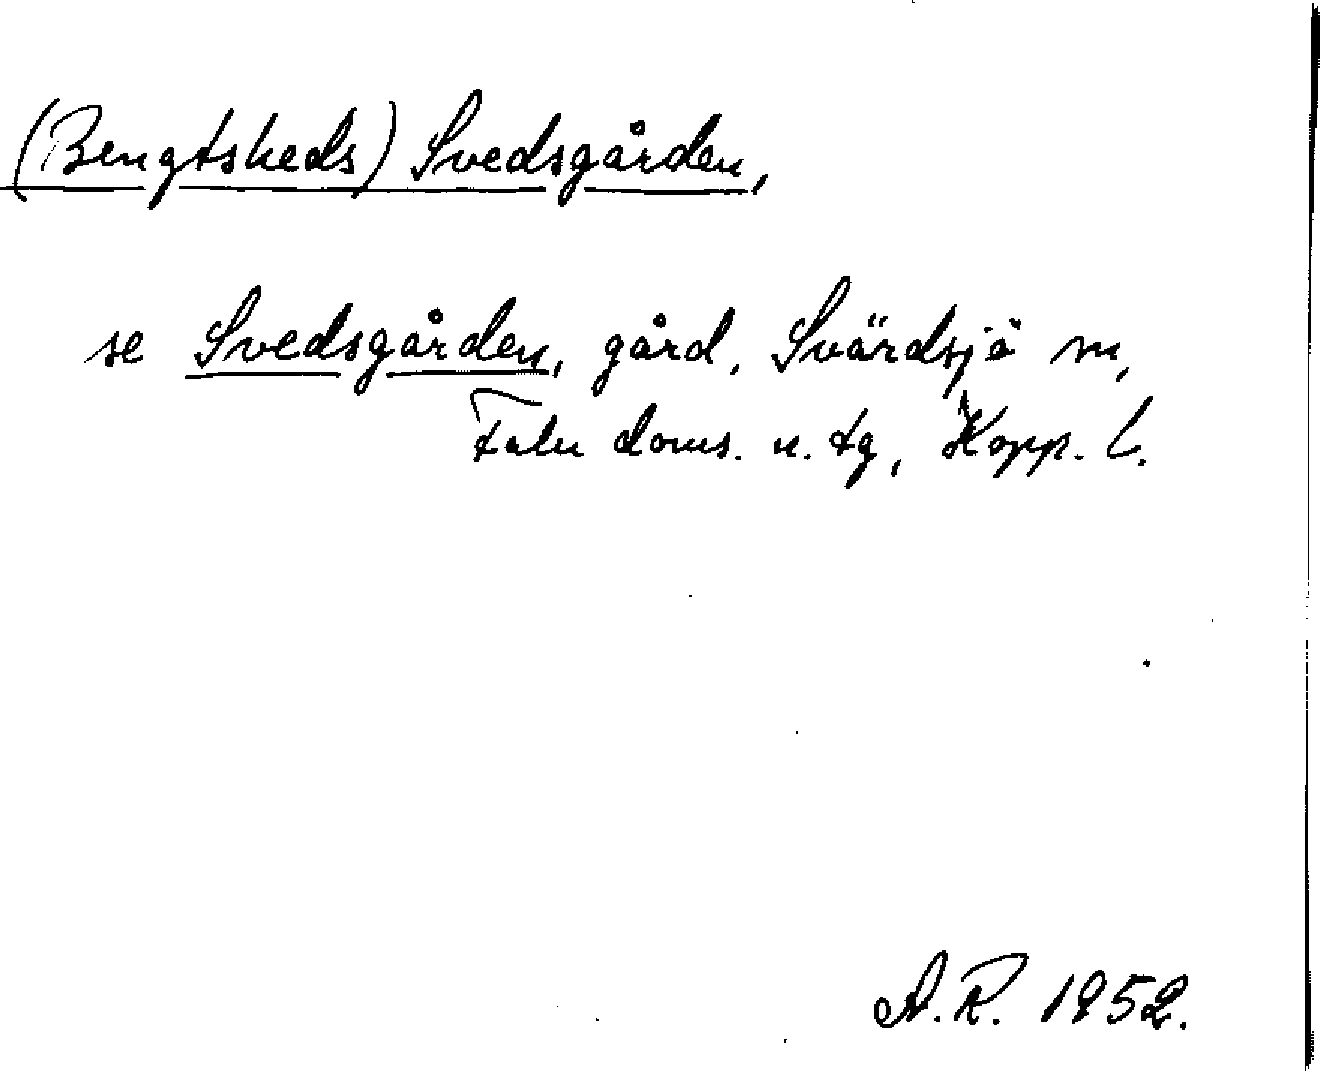 (Bengtsheds) Svedsgården,
se Svedsgården, gård, Svärdsjö sn,
Falu doms. n. tg, Kopp. l.
A.R. 1952.